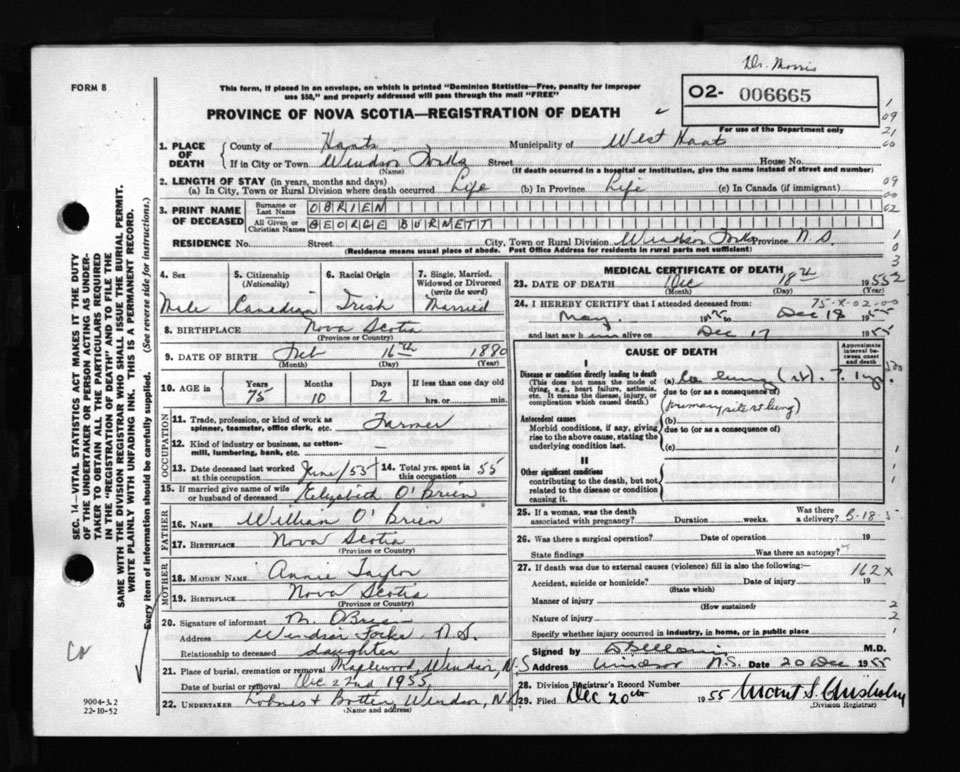 Dr. Morris
FORM 8
This form, if placed in an envelope, on which is printed "Dominion Statistics—Free, penalty for improper
use $50," and properly addressed will pass through the mail "FREE"
O2- 006665
For use of the Department only
PROVINCE OF NOVA SCOTIA—REGISTRATION OF DEATH
1. PLACE OF DEATH
County of Hants Municipality of West Hants
If in City or Town Windsor Forks Street House No.
(Name) (If death occurred in a hospital or institution, give the name instead of street and number)
2. LENGTH OF STAY (in years, months and days)
(a) In City, Town or Rural Division where death occurred Life (b) In Province Life (c) In Canada (if immigrant)
3. PRINT NAME OF DECEASED
Surname or Last Name OBRIEN
All Given or Christian Names GEORGE BURNETT
RESIDENCE No. Street City, Town or Rural Division Windsor Forks Province N.S.
(Residence means usual place of abode. Post Office Address for residents in rural parts not sufficient)
4. Sex Male
5. Citizenship (Nationality) Canadian
6. Racial Origin Irish
7. Single, Married, Widowed or Divorced (write the word) Married
8. BIRTHPLACE Nova Scotia
(Province or Country)
9. DATE OF BIRTH Feb 16th 1880
(Month) (Day) (Year)
10. AGE in Years 75 Months 10 Days 2 If less than one day old hrs. or min.
OCCUPATION
11. Trade, profession, or kind of work as spinner, teamster, office clerk, etc. Farmer
12. Kind of industry or business, as cotton-mill, lumbering, bank, etc. —
13. Date deceased last worked at this occupation June/55 14. Total yrs. spent in this occupation 55
15. If married give name of wife or husband of deceased Elizabeth O'Brien
FATHER
16. NAME William O'Brien
17. BIRTHPLACE Nova Scotia
(Province or Country)
MOTHER
18. MAIDEN NAME Annie Taylor
19. BIRTHPLACE Nova Scotia
(Province or Country)
20. Signature of informant M. OBrien
Address Windsor Forks N.S.
Relationship to deceased daughter
21. Place of burial, cremation or removal Maplewood, Windsor, N.S
Date of burial or removal Dec 22nd 1955
22. UNDERTAKER Windsor, N.S.
(Name and address)
MEDICAL CERTIFICATE OF DEATH
23. DATE OF DEATH Dec 18th 1955
(Month) (Day)
24. I HEREBY CERTIFY that I attended deceased from
May 1955 to Dec 18 1955
and last saw h im alive on Dec 17 1955
CAUSE OF DEATH
Approximate interval between onset and death
I
Disease or condition directly leading to death
(This does not mean the mode of dying, e.g., heart failure, asthenia, etc. It means the disease, injury, or complication which caused death.)
(a) Ca lung (rt).
due to (or as a consequence of)
Antecedent causes
Morbid conditions, if any, giving rise to the above cause, stating the underlying condition last.
(b)
due to (or as a consequence of)
(c)
II
Other significant conditions
contributing to the death, but not related to the disease or condition causing it.
25. If a woman, was the death associated with pregnancy? Duration weeks. Was there a delivery?
26. Was there a surgical operation? Date of operation 19
State findings Was there an autopsy?
27. If death was due to external causes (violence) fill in also the following:— 162x
Accident, suicide or homicide? Date of injury 19
(State which)
Manner of injury
(How sustained)
Nature of injury
Specify whether injury occurred in industry, in home, or in public place
Signed by M.D.
Address Windsor N.S. Date 20 Dec 1955
28. Division Registrar's Record Number
29. Filed Dec 20th 1955
(Division Registrar)
SEC. 14—VITAL STATISTICS ACT MAKES IT THE DUTY
OF THE UNDERTAKER OR PERSON ACTING AS UNDER-
TAKER TO OBTAIN ALL THE PARTICULARS REQUIRED
IN THE "REGISTRATION OF DEATH" AND TO FILE THE
SAME WITH THE DIVISION REGISTRAR WHO SHALL ISSUE THE BURIAL PERMIT.
WRITE PLAINLY WITH UNFADING INK. THIS IS A PERMANENT RECORD.
Every item of information should be carefully supplied. (See reverse side for instructions.)
9004-3.2
22-10-52